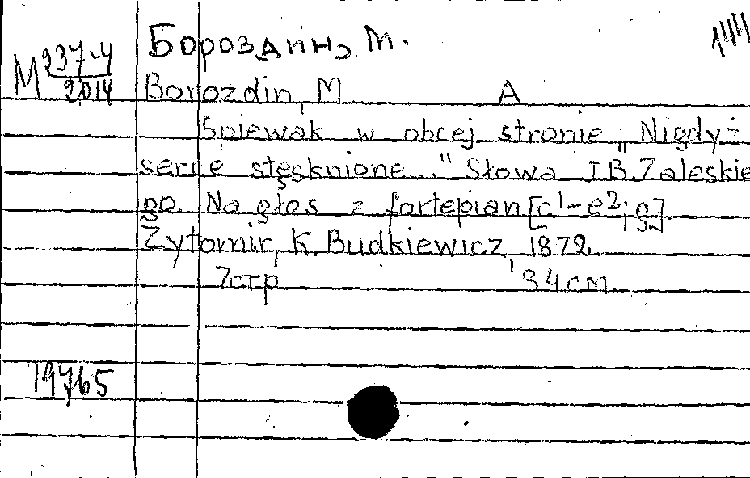 Бороздин, М.
М 237-4/2014
Borozdin, M A
Spiewak w obcej stronie „Nigdyż
serce stęsknione..." Słowa I.B. Zaleskie
go. Na głos z fortepian [c¹-e²; g]
Żytomir, K. Budkiewicz, 1872.
7стр 34 cm
19765